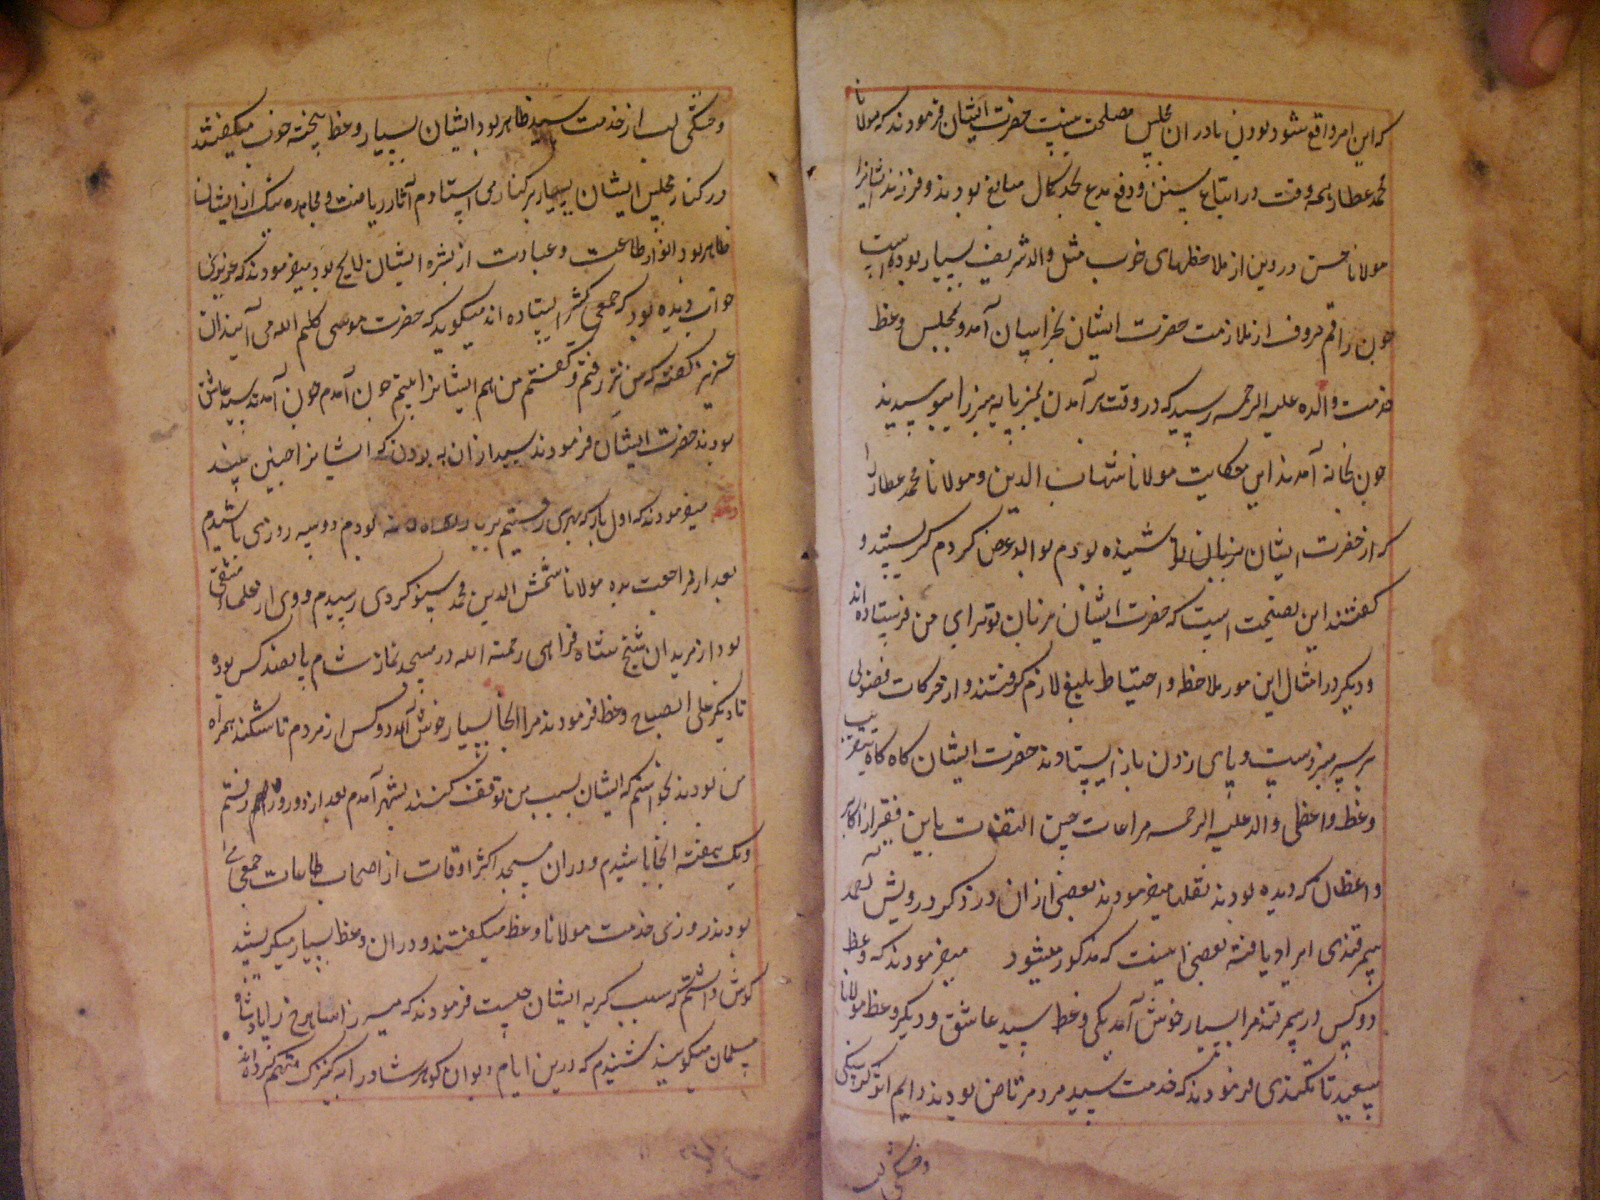 که این امر واقع شود بودن یا در ان مجلس مصلحت نیست حضرت ایشان فرمودند که مولانا
محمد عطار همه وقت در اتباع سنن و دفع بدع بحد کمال مبالغ بودند و فرزند ایشانرا
مولانا حسن درین از ملاحظهای خوب مثل والد شریف بسیار بوده است
چون راقم حروف از ملازمت حضرت ایشان بخراسان آمد و بمجلس وعظ
خدمت والده علیه الرحمه رسید که در وقت بر آمدن بمنبر پایه منبر را میبوسیدند
چون بخانه آمدند این حکایت مولانا شهاب الدین و مولانا محمد عطار را
که از حضرت ایشان بزبان شنیده بودم بوالد عرض کردم گریستند و
گفتند این نصیحت است که حضرت ایشان بزبان تو برای من فرستاده اند
و دیگر در امثال این امور ملاحظه و احتیاط بلیغ لازم گرفتند و از حرکات فضولی
بر سر منبر دست و پای زدن باز ایستادند حضرت ایشان گاه گاه بتقریب
وعظ و واعظی والد علیه الرحمه مراعات حین التفات باین فقیر از اکابر
واعظان که دیده بودند نقلها میفرمودند بعضی ازان در ذکر درویش احمد
سمرقندی ایراد یافته بعضی اینست که مذکور میشود میفرمودند که وعظ
دو کس در سمرقند مرا بسیار خوش آمد یکی وعظ سید عاشق و دیگر وعظ مولانا
سعید تاشکندی فرمودند که خدمت سید مرد مرتاض بودند دایم اثر گرسنگی
و خشکی لب
و خشکی لب از خدمت سید ظاهر بود ایشان بسیار وعظ پخته خوب میگفتند
در کنار مجلس ایشان بسیار بر کنار می استادم آثار ریاضت و مجاهده نیک از ایشان
ظاهر بود انوار طاعت و عبادت از بشره ایشان لایح بود میفرمودند که عزیزی
خواب دیده بود که جمعی کثیر ایستاده اند میگوید که حضرت موسی کلیم الله می آیند آن
عزیز گفته که من نیز رفتم و گفتم من هم ایشانرا بینم چون آمدم چون آمدند سید عاشق
بودند حضرت ایشان فرمودند سید ازان به بودند که ایشانرا چنین بینند
میفرمودند که اول بار که بهری رفتیم بودم دو سه روزی باشیدم
بعد از مراجعت بده مولانا شمش الدین محمد رسیدم و وی از علماء متقی
بود از مریدان شیخ شاه فراهی رحمته الله در مسجد نماز شام پانصد کس بود
تا دیگر علی الصباح وعظ فرمودند مرا انجا بسیار خوش آمد دو کس از مردم تاشکند همراه
من بودند نخواستم که ایشان بسبب من توقف کنند بشهر آمدم بعد از دو روز رفتم
و یک هفته انجا باشیدم و دران مسجد اکثر اوقات از اصحاب طاعات جمعی می
بودند روزی خدمت مولانا وعظ میگفتند و در ان وعظ بسیار میگریستند
گوش داشتم که سبب گریه ایشان چیست فرمودند که میرزا شاهرخ را پادشاه
مسلمان میگویند شنیدم که درین ایام دیوان گوهرشاد را به کنیزک متهم کرده اند